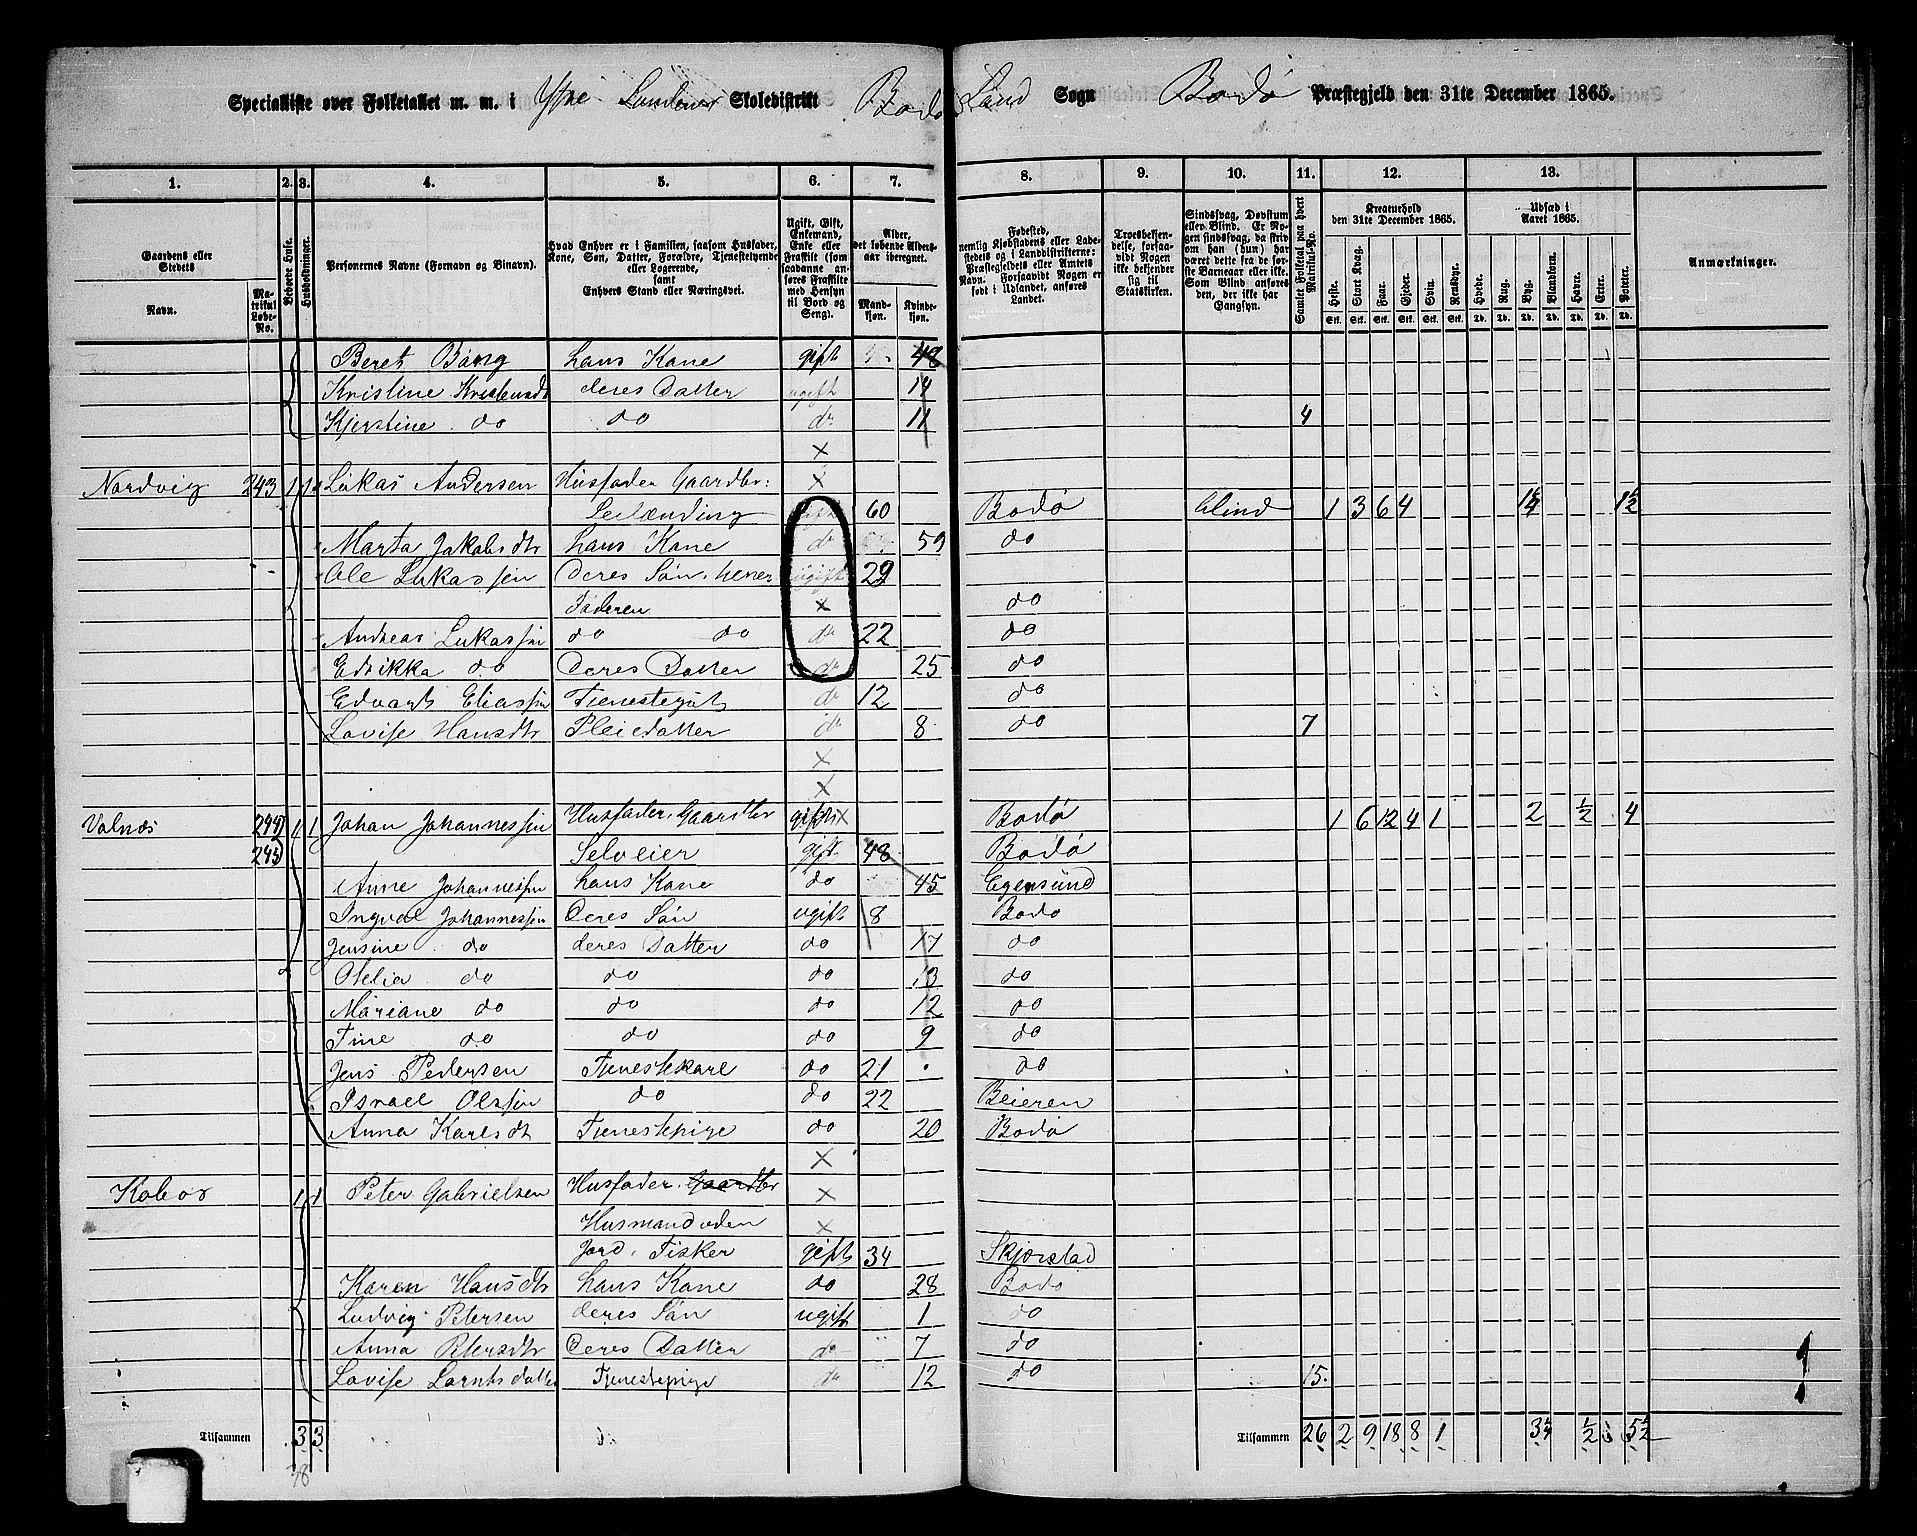 Specialliste over Folketallet m. m. i Skoledistrikt Bodø Land Sogn Bodø Præstegjeld den 31te December 1865.
1. 2. 3. 4. 5. 6. 7. 8. 9. 10. 11. 12. 13.
Gaardens eller Stedets
Navn.
Matrikul Løbe-No.
Beboede Huse.
Husholdninger.
Personernes Navne (Fornavn og Binavn).
Hvad Enhver er i Familien, saasom Husfader, Kone, Søn, Datter, Forældre, Tjenestetyende eller Logerende, samt Enhvers Stand eller Næringsvei.
Ugift, Gift, Enkemand, Enke eller Fraskilt (som saadanne anføres Fraskilte med Hensyn til Bord og Seng).
Alder, det løbende Aldersaar iberegnet.
Mandkjøn. Kvindekjøn.
Fødested, nemlig Kjøbstadens eller Ladestedets og i Landdistrikterne: Præstegjeldets eller Amtets Navn. Forsaavidt Nogen er født i Udlandet, anføres Landet.
Troesbekjendelse, forsaavidt Nogen ikke bekjender sig til Statskirken.
Sindssvag, Døvstum eller Blind. Er Nogen sindssvag, da skriv om han (hun) har været dette fra de første Barneaar eller ikke. Som Blind anføres den, der ikke har Gangsyn.
Samlet Folketal paa hvert Matrikul-No.
Kreaturhold den 31te December 1865.
Heste. Stort Kvæg. Faar. Gjeder. Svin. Rensdyr.
Udsæd i Aaret 1865.
Hvede. Rug. Byg. Blandkorn. Havre. Erter. Poteter.
Anmærkninger.
Beret Bång hans Kone gift 48
Kristine deres Datter ugift 14
Kjerstine do do do 11 4
Nordvig 243 1 1 Lukas Andersen Husfader Gaardbr:
60 Bodø blind 1 3 6 4
Marta Jakobsdtr hans Kone do 59 do
Ole Lukassen Deres Søn, ugift 29
Faderen do
Andreas Lukassen do do do 22 do
Edrikka do Deres Datter do 25 do
Edvart Eliassen Tjenestegut do 12 do
Lovise Hansdtr Pleiedatter do 8 do 7
Valnæs 244 1 1 Johan Johannessen Husfader, Gaardbr gift Bodø 1 6 12 4 1 2 1/2 4
245 Selveier gift 48 Bodø
Anne Johannessen hans Kone do 45 Egersund
Ingval Johannessen Deres Søn ugift 8 Bodø
Jensine do deres Datter do 17 do
Otelia do do do 13 do
Mariane do do do 12 do
Tine do do do 9 do
Jens Pedersen Tjenestekarl do 21 do
Israel Olssen do do 22 Beieren
Anna Karlsdt Tjenestepige do 20 Bodø
1 1 Peter Gabrielsen Husfader, Gaardbr
Husmand uden
Jord, Fisker gift 34 Skjerstad
Karen Hansdtr hans Kone do 28 Bodø
Ludvig Petersen deres Søn ugift 1 do
Anna Petersdtr Deres Datter do 7 do
Lovise Tjenestepige do 12 do 15.
Tilsammen 3 3 Tilsammen 26 2 9 18 8 1
38